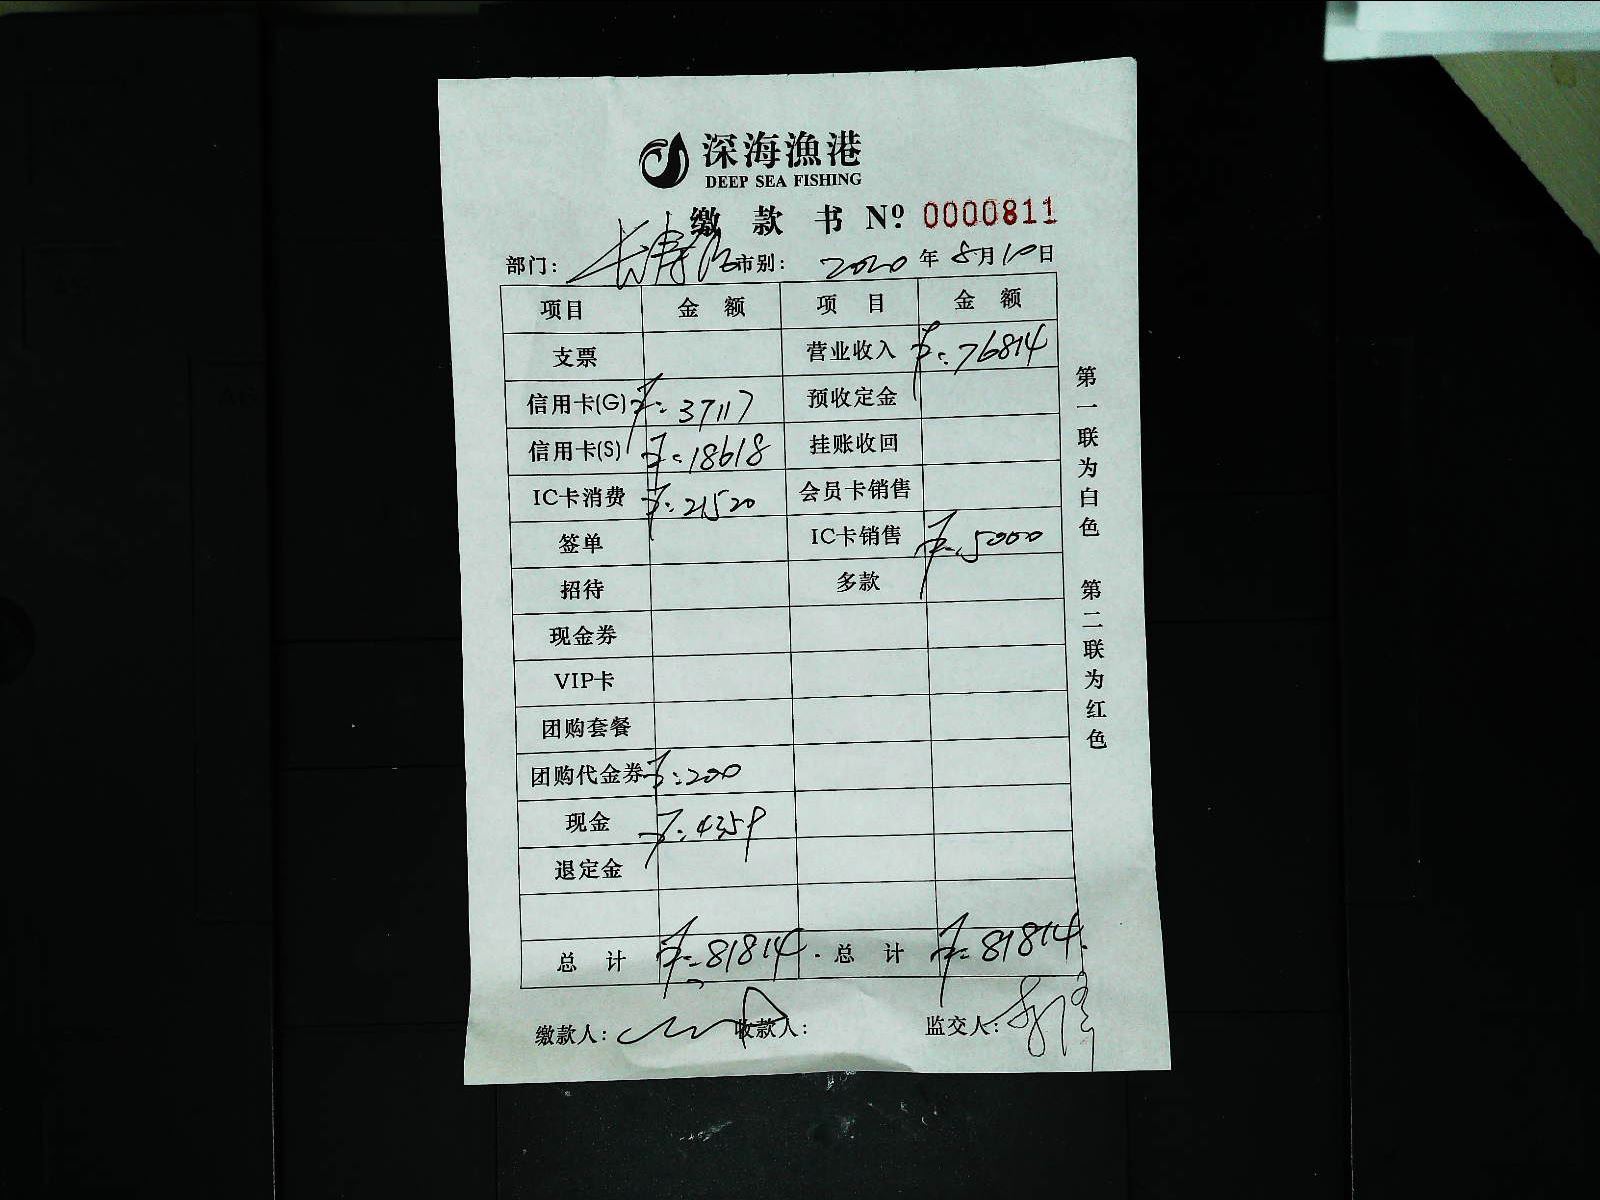 深海漁港
DEEP SEA FISHING
缴 款 书 Nº: 0000811
部门: 市别: 2020 年 8月10日
项目 金 额 项 目 金 额
支票 营业收入 ¥:76814
信用卡(G) ¥:37117 预收定金
信用卡(S) ¥:18618 挂账收回
IC卡消费 ¥:21520 会员卡销售
签单 IC卡销售 ¥:5000
招待 多款
现金券
VIP卡
团购套餐
团购代金券 ¥:200
现金 ¥:4359
退定金
总 计 ¥:81814 总 计 ¥:81814
缴款人: 收款人: 监交人:
第一联为白色 第二联为红色